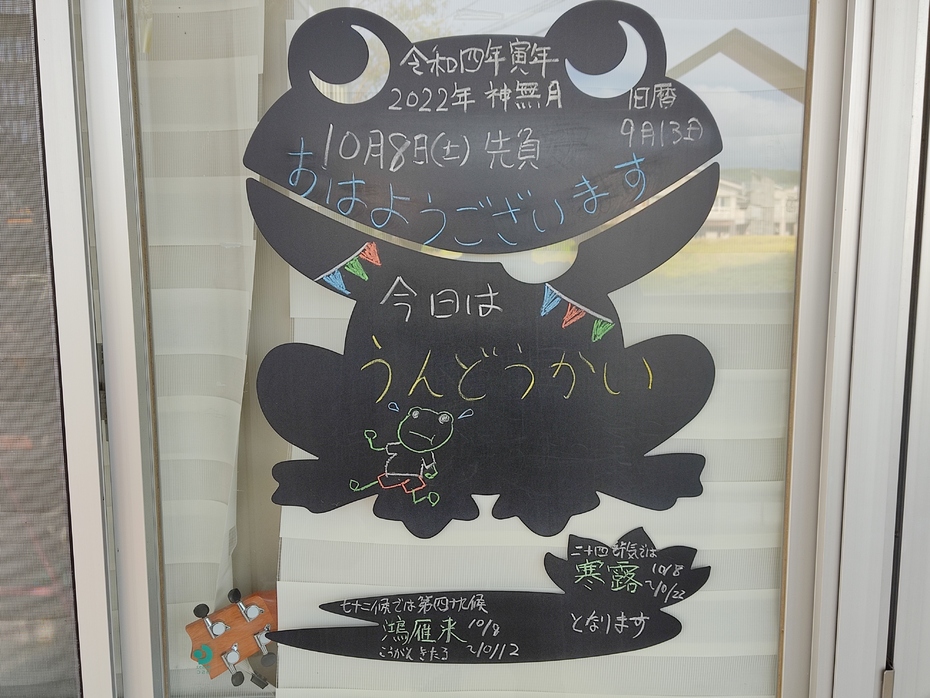 令和四年寅年
2022年 神無月
旧暦
9月13日
10月8日(土) 先負
おはようございます
今日は
うんどうかい
二十四節気では
寒露 10/8
~10/22
となります
七十二候では第四十九候
鴻雁来 10/8
こうがんきたる ~10/12